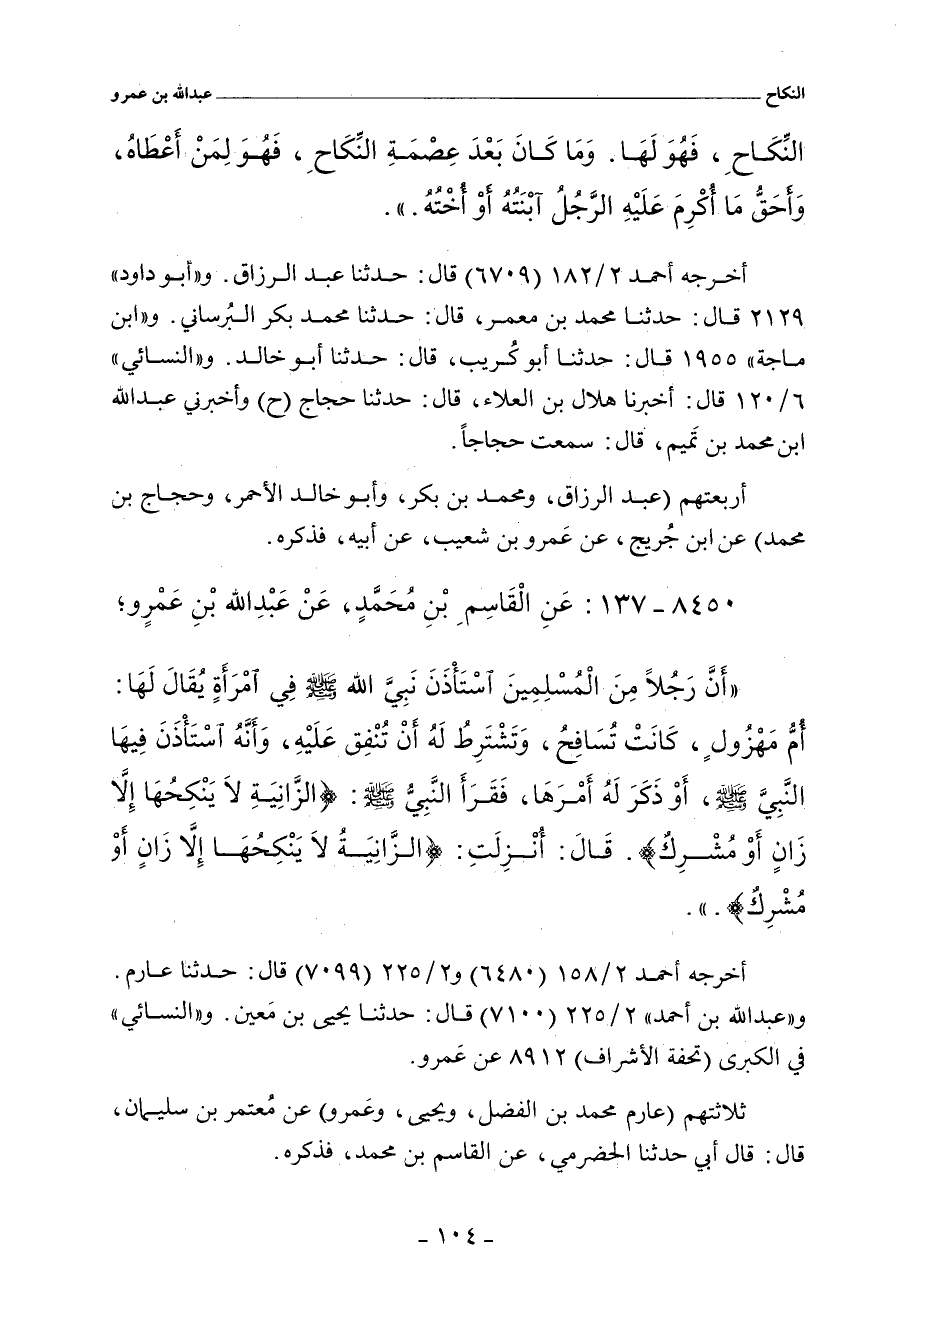 النكاح ــــــــــــــــــــــــــــــــ عبدالله بن عمرو
النِّكَـاحِ ، فَهُوَ لَهَـا . وَمَا كَـانَ بَعْدَ عِصْمَـةِ النِّكَـاحِ ، فَهُـوَ لِمَنْ أَعْطَاهُ ،
وَأَحَقُّ مَا أُكْرِمَ عَلَيْهِ الرَّجُلُ آبْنَتُهُ أَوْ أُخْتُهُ . » .
أخـرجه أحمـد ٢/ ١٨٢ (٦٧٠٩) قال : حـدثنا عبـد الـرزاق . و«أبـو داود»
٢١٢٩ قـال : حدثنـا محمد بن معمـر، قال : حـدثنا محمـد بكر الـبُرساني . و«ابن
مـاجة» ١٩٥٥ قـال : حدثنـا أبو كُـريب، قال : حـدثنـا أبـو خالـد . و«النسـائي»
٦/ ١٢٠ قال : أخبرنا هلال بن العلاء، قال : حدثنا حجاج (ح) وأخبرني عبـدالله
ابن محمد بن تَميم ، قال : سمعت حجاجاً .
أربعتهم (عبـد الرزاق، ومحمـد بن بكر، وأبـو خالـد الأحمر، وحجـاج بن
محمد) عن ابن جُريج ، عن عَمرو بن شعيب، عن أبيه، فذكره .
٨٤٥٠ - ١٣٧ : عَنِ الْقَاسِمِ بْنِ مُحَمَّدٍ، عَنْ عَبْدِالله بْنِ عَمْرٍو؛
«أَنَّ رَجُلاً مِنَ الْمُسْلِمِينَ آسْتَأْذَنَ نَبِيَّ الله ﷺ فِي آمْرَأَةٍ يُقَالَ لَهَا :
أُمُّ مَهْزُولٍ ، كَانَتْ تُسَافِحُ ، وَتَشْتَرِطُ لَهُ أَنْ تُنْفِق عَلَيْهِ، وَأَنَّهُ آسْتَأْذَنَ فِيهَا
النَّبِيَّ ﷺ ، أَوْ ذَكَرَ لَهُ أَمْرَهَا، فَقَرَأَ النَّبِيُّ ﷺ : ﴿الزَّانِيَةِ لاَ يَنْكِحُهَا إِلَّا
زَانٍ أَوْ مُشْـرِكٌ﴾ . قَـالَ : أُنْـزِلَتِ : ﴿الـزَّانِيَـةُ لاَ يَنْكِحُهَـا إِلَّا زَانٍ أَوْ
مُشْرِكٌ﴾ . » .
أخرجه أحمـد ٢/ ١٥٨ (٦٤٨٠) و٢/ ٢٢٥ (٧٠٩٩) قال : حـدثنا عـارم .
و«عبدالله بن أحمد» ٢/ ٢٢٥ (٧١٠٠) قـال : حدثنـا يحيى بن مَعين . و«النسائي»
في الكبرى (تحفة الأشراف) ٨٩١٢ عن عَمرو .
ثلاثتهم (عارم محمد بن الفضل ، ويحيى ، وعَمرو) عن مُعتمر بن سليمان ،
قال : قال أبي حدثنا الحضرمي ، عن القاسم بن محمد، فذكره .
- ١٠٤ -